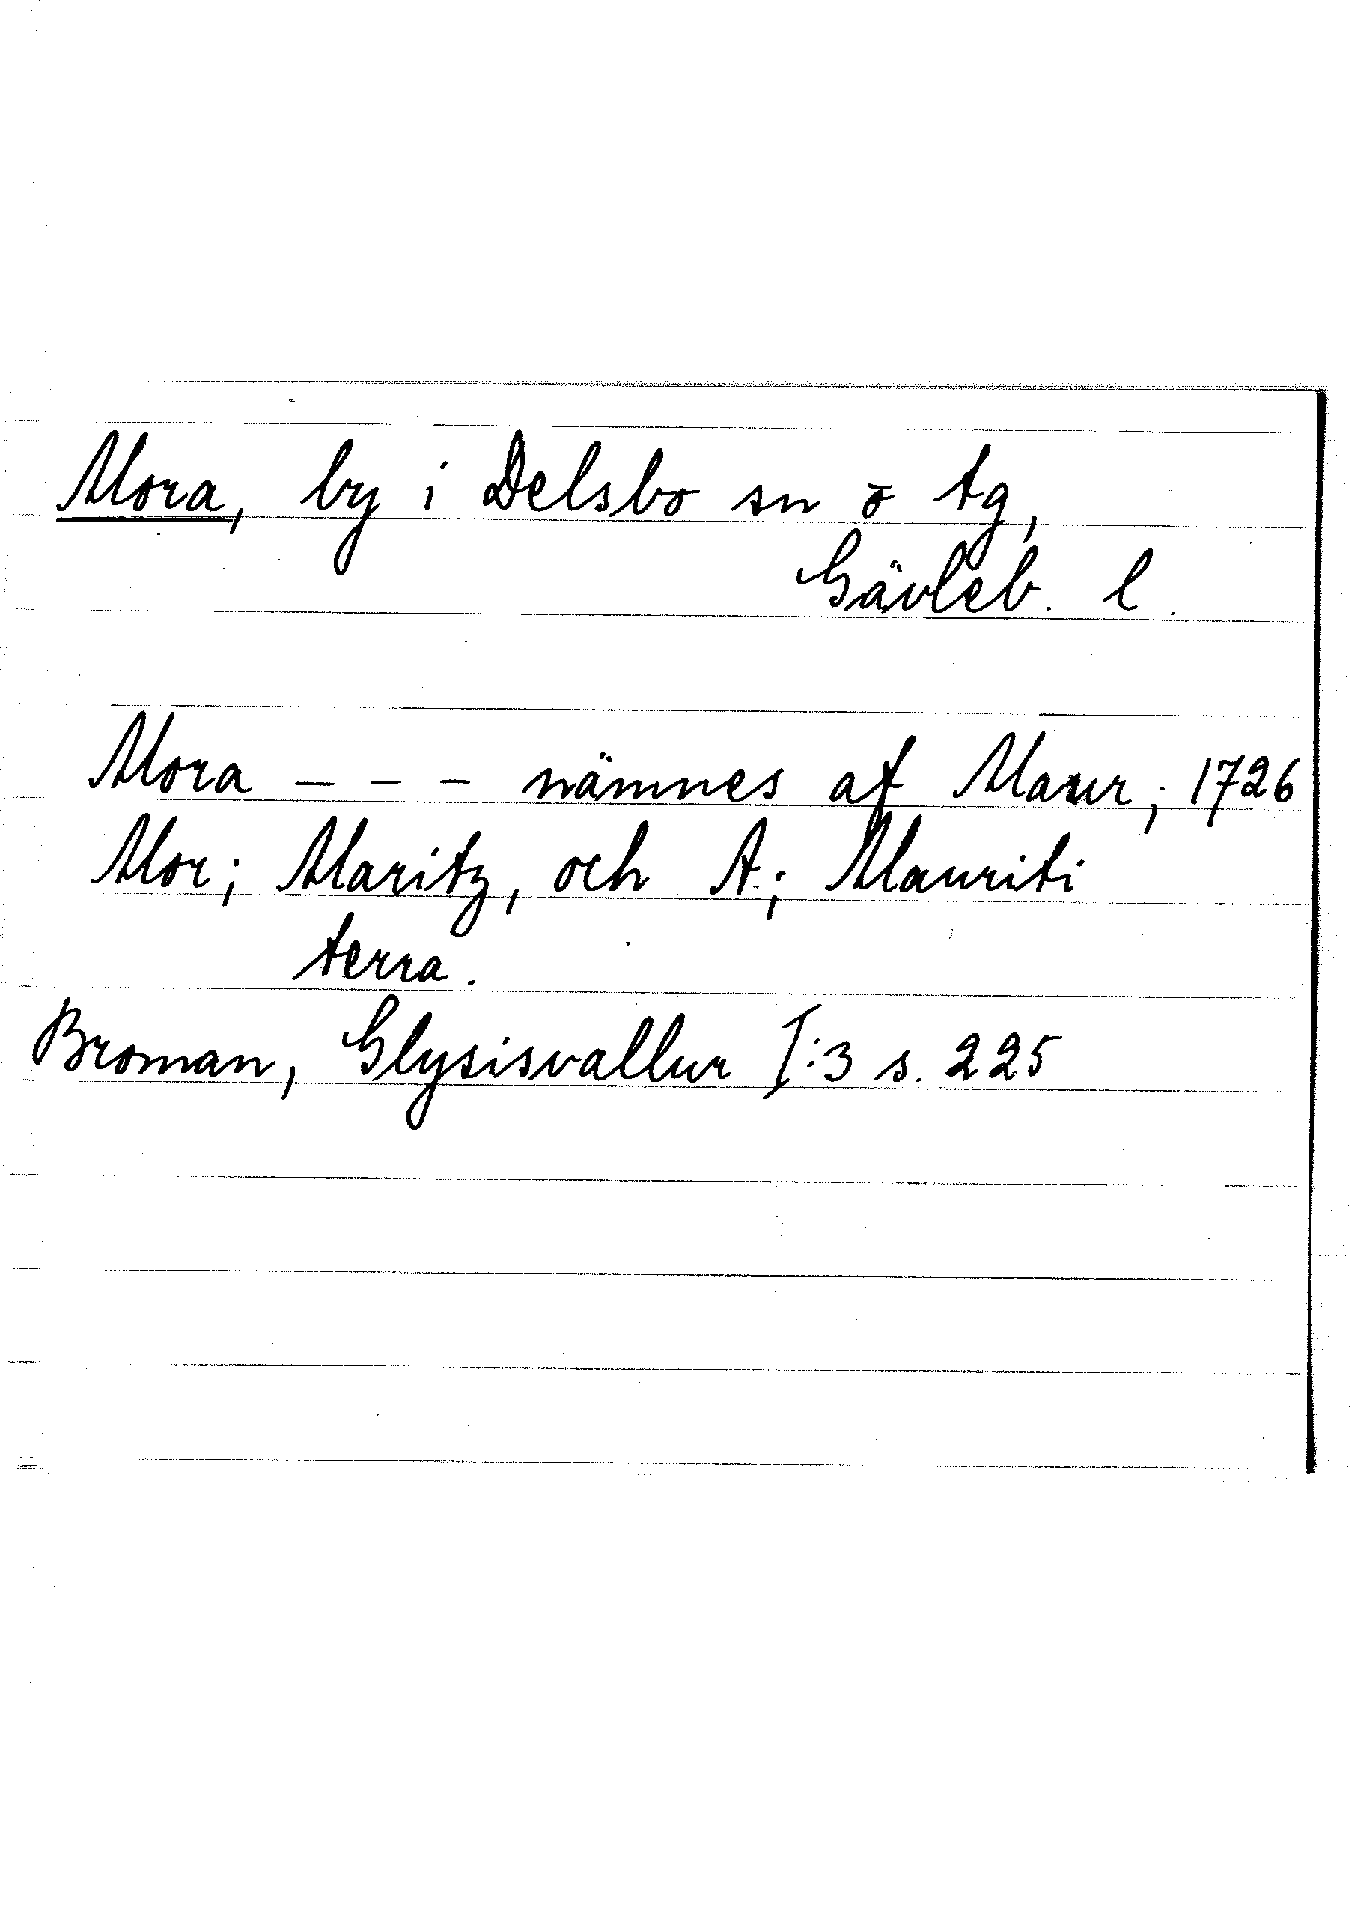 Mora, by i Delsbo sn o tg,
Gävleb. l.
Mora - - - nämnes af Maur; 1726
Mor; Maritz, och A; Mauriti
terra.
Broman, Glysisvallur I:3 s. 225